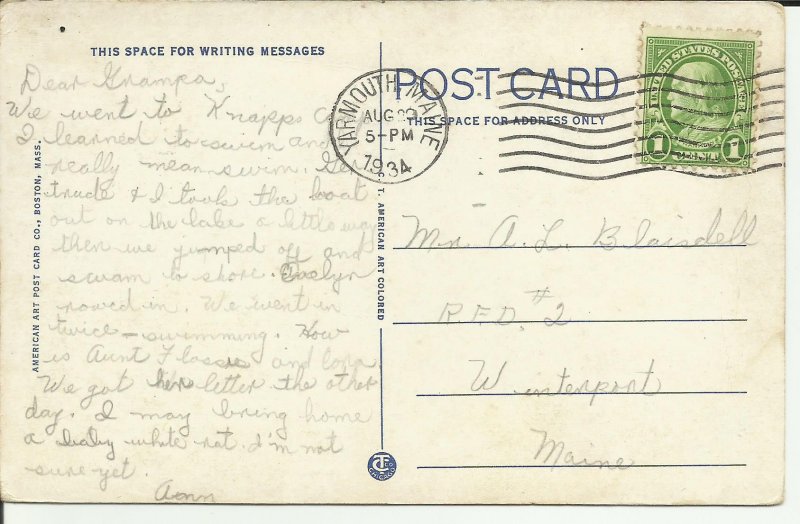 THIS SPACE FOR WRITING MESSAGES
Dear Grampa,
We went to Knapps
I learned to swim and
really mean swim. Ger-
trude & I took the boat
out on the lake a little way
then we yumped off and
swam to shore. Evelyn
rowed in. We went in
twice - swimming. How
is Aunt Flossie and
We got her letter the other
day. I may bring home
a baby white rat. I'm not
sure yet.
Ann
AMERICAN ART POST CARD CO., BOSTON, MASS.
T. AMERICAN ART COLORED
CHICAGO
POST CARD
THIS SPACE FOR ADDRESS ONLY
YARMOUTH, MAINE
AUG
5-PM
1934
UNITED STATES POSTAGE
1 1
Mr. A. L. Blaisdell
R.F.D. #2
Winterport
Maine